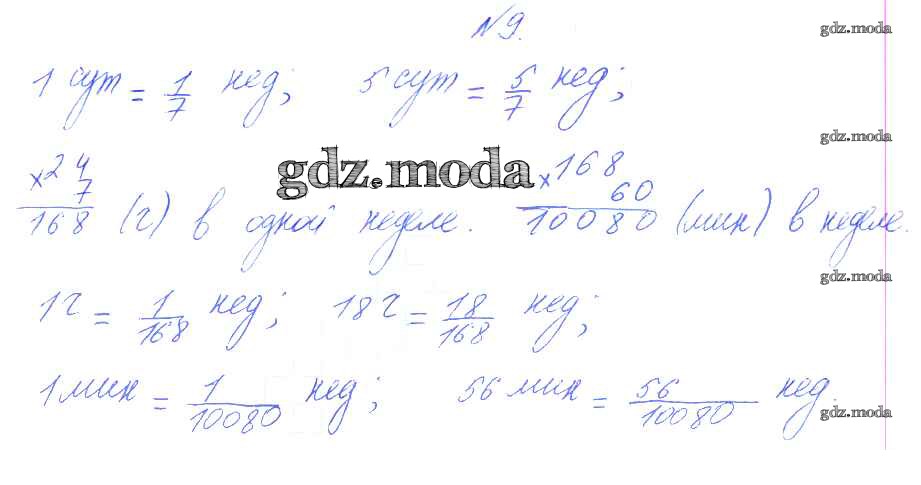 №9.
gdz.moda
1 сут = 1/7 нед; 5 сут = 5/7 нед;
gdz.moda
gdz.moda
×24 ×168
7 60
168 (ч) в одной неделе. 10080 (мин) в неделе.
gdz.moda
1ч = 1/168 нед; 18ч = 18/168 нед;
1 мин = 1/10080 нед; 56 мин = 56/10080 нед.
gdz.moda